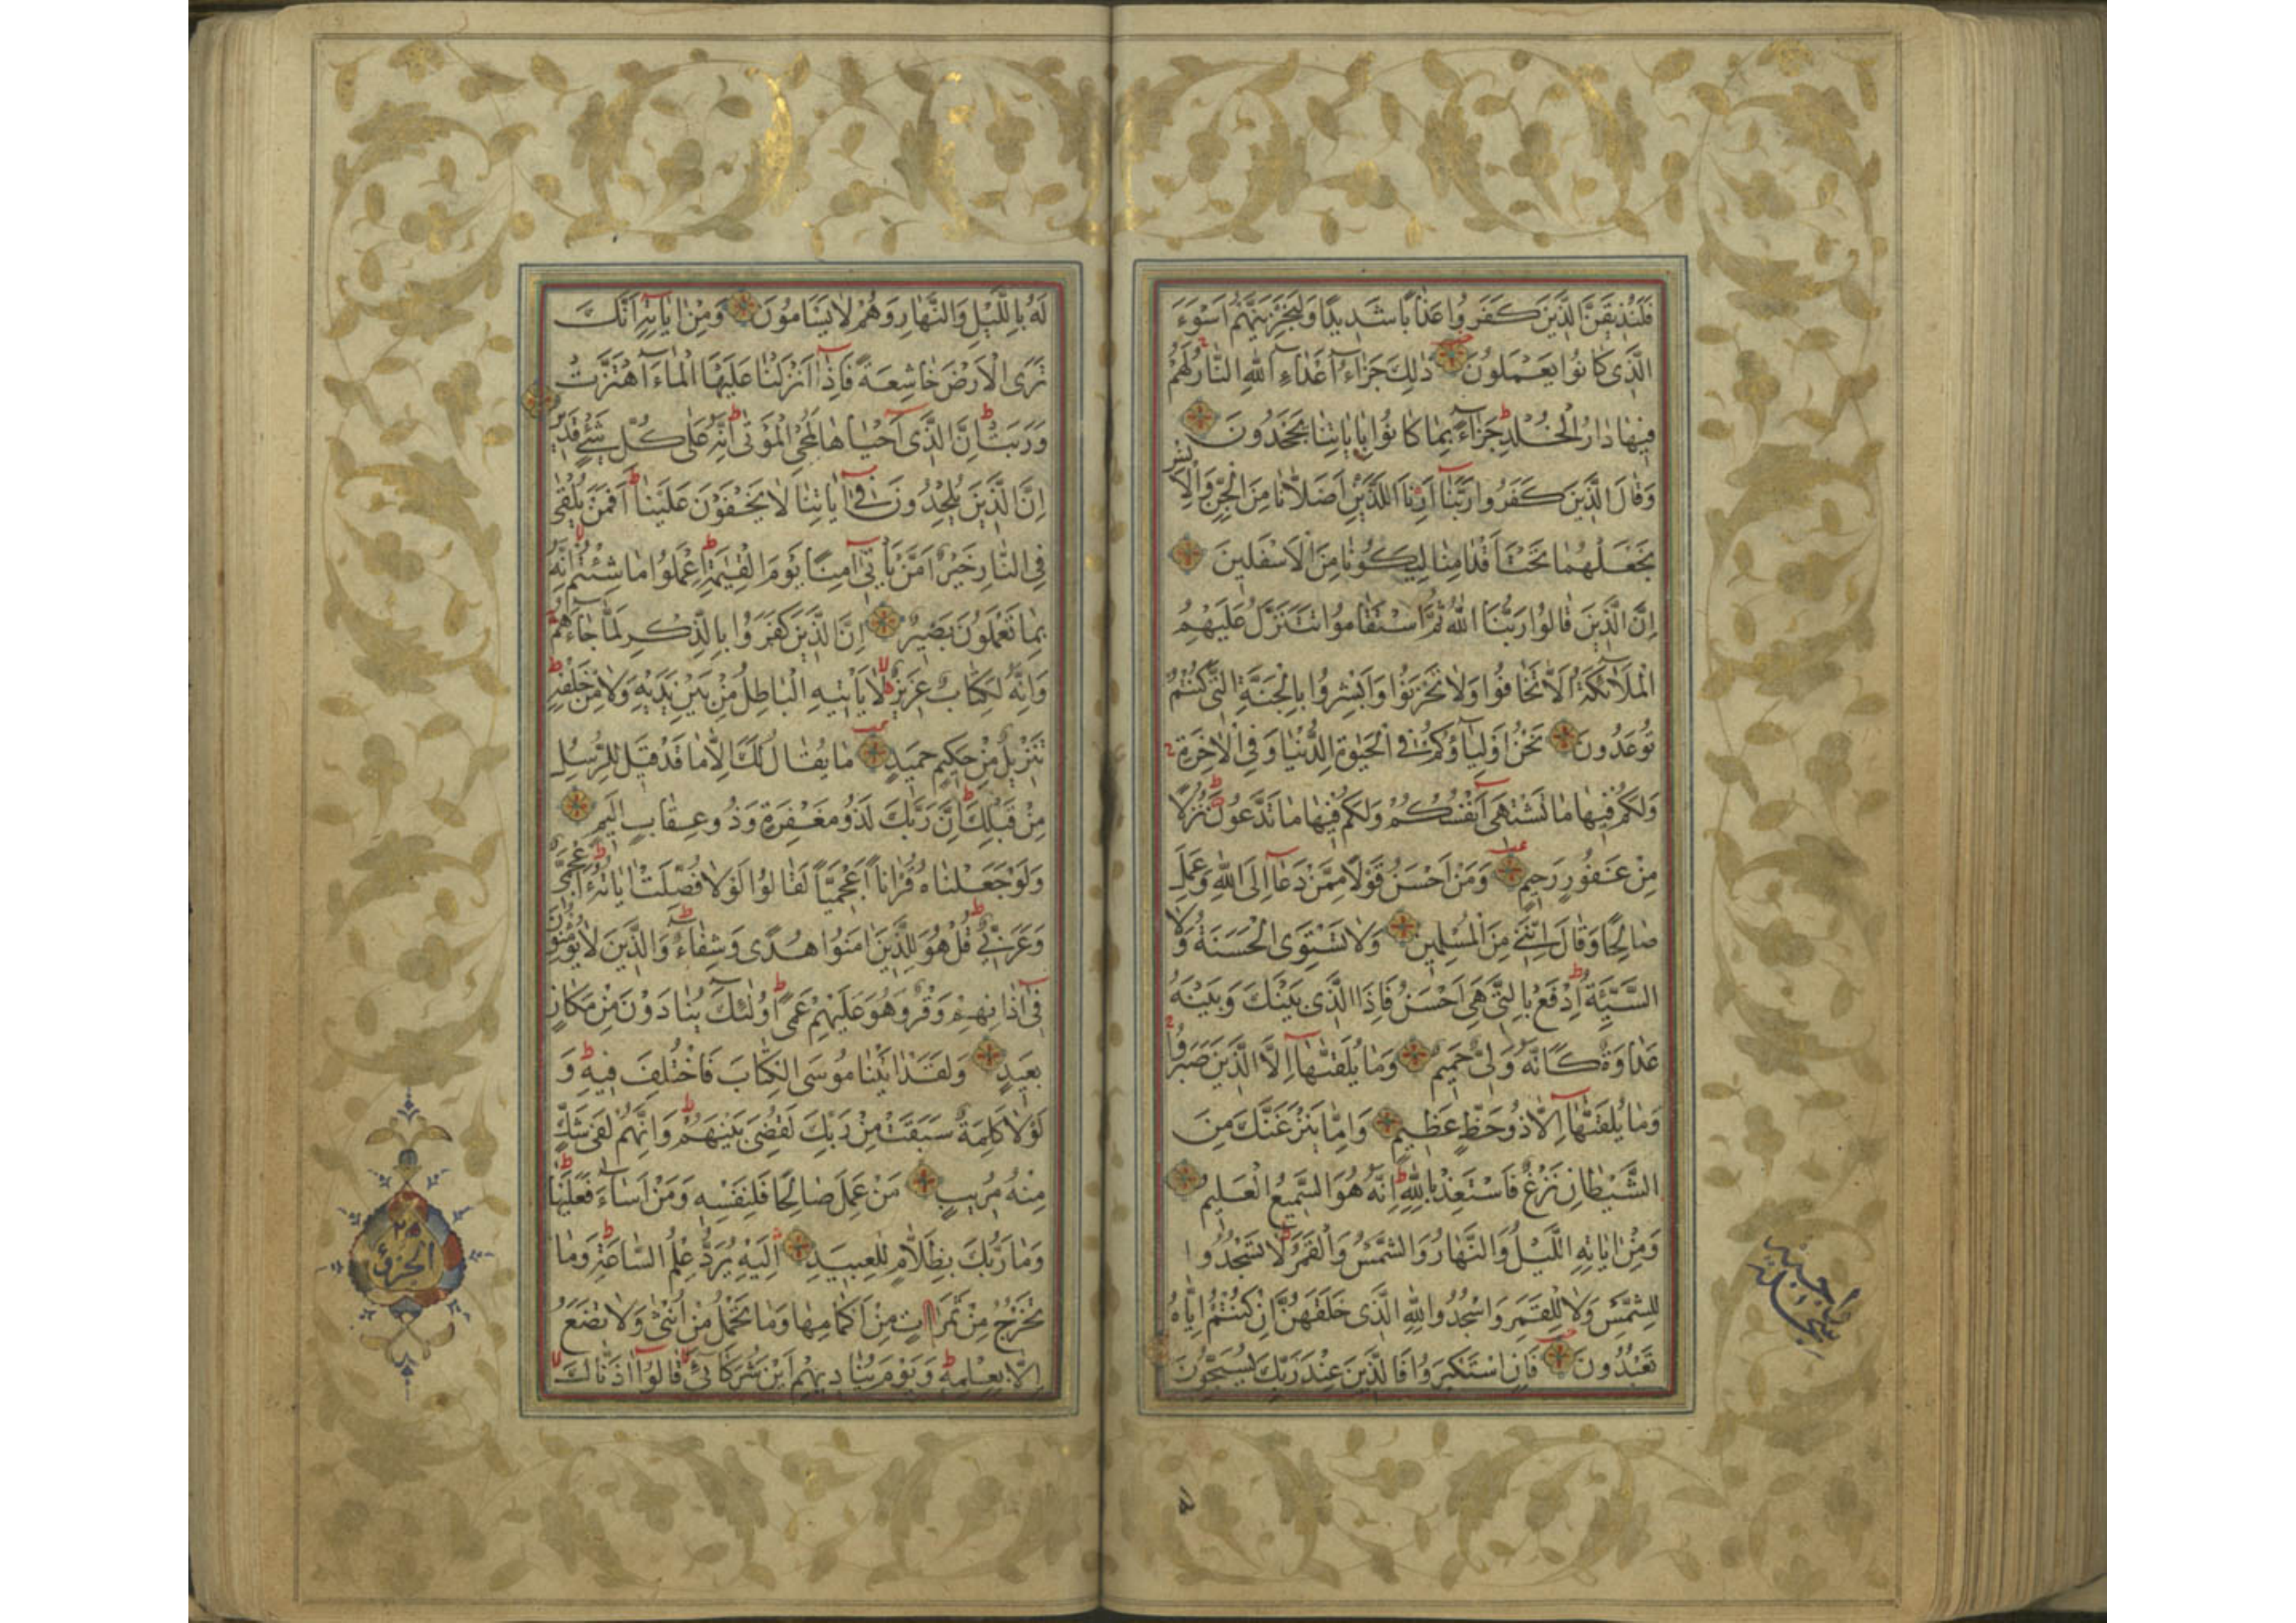 فَلَنُذِيقَنَّ الَّذِينَ كَفَرُوا عَذَابًا شَدِيدًا وَلَنَجْزِيَنَّهُمْ اَسْوَءَ
الَّذِى كَانُوا يَعْمَلُونَ ذٰلِكَ جَزَاءُ اَعْدَاءِ اللهِ النَّارُ لَهُمْ
فِيهَا دَارُ الْخُلْدِ جَزَاءً بِمَا كَانُوا بِاٰيَاتِنَا يَجْحَدُونَ
وَقَالَ الَّذِينَ كَفَرُوا رَبَّنَا اَرِنَا اللَّذَيْنِ اَضَلَّانَا مِنَ الْجِنِّ وَالْاِنْسِ
نَجْعَلْهُمَا تَحْتَ اَقْدَامِنَا لِيَكُونَا مِنَ الْاَسْفَلِينَ
اِنَّ الَّذِينَ قَالُوا رَبُّنَا اللهُ ثُمَّ اسْتَقَامُوا تَتَنَزَّلُ عَلَيْهِمُ
الْمَلَائِكَةُ اَلَّا تَخَافُوا وَلَا تَحْزَنُوا وَاَبْشِرُوا بِالْجَنَّةِ الَّتِى كُنْتُمْ
تُوعَدُونَ نَحْنُ اَوْلِيَاؤُكُمْ فِى الْحَيٰوةِ الدُّنْيَا وَفِى الْاٰخِرَةِ
وَلَكُمْ فِيهَا مَا تَشْتَهِى اَنْفُسُكُمْ وَلَكُمْ فِيهَا مَا تَدَّعُونَ نُزُلًا
مِنْ غَفُورٍ رَحِيمٍ وَمَنْ اَحْسَنُ قَوْلًا مِمَّنْ دَعَا اِلَى اللهِ وَعَمِلَ
صَالِحًا وَقَالَ اِنَّنِى مِنَ الْمُسْلِمِينَ وَلَا تَسْتَوِى الْحَسَنَةُ وَلَا
السَّيِّئَةُ اِدْفَعْ بِالَّتِى هِىَ اَحْسَنُ فَاِذَا الَّذِى بَيْنَكَ وَبَيْنَهُ
عَدَاوَةٌ كَاَنَّهُ وَلِىٌّ حَمِيمٌ وَمَا يُلَقّٰيهَا اِلَّا الَّذِينَ صَبَرُوا
وَمَا يُلَقّٰيهَا اِلَّا ذُو حَظٍّ عَظِيمٍ وَاِمَّا يَنْزَغَنَّكَ مِنَ
الشَّيْطَانِ نَزْغٌ فَاسْتَعِذْ بِاللهِ اِنَّهُ هُوَ السَّمِيعُ الْعَلِيمُ
وَمِنْ اٰيَاتِهِ اللَّيْلُ وَالنَّهَارُ وَالشَّمْسُ وَالْقَمَرُ لَا تَسْجُدُوا
لِلشَّمْسِ وَلَا لِلْقَمَرِ وَاسْجُدُوا لِلهِ الَّذِى خَلَقَهُنَّ اِنْ كُنْتُمْ اِيَّاهُ
تَعْبُدُونَ فَاِنِ اسْتَكْبَرُوا فَالَّذِينَ عِنْدَ رَبِّكَ يُسَبِّحُونَ
لَهُ بِاللَّيْلِ وَالنَّهَارِ وَهُمْ لَا يَسْاَمُونَ وَمِنْ اٰيَاتِهِ اَنَّكَ
تَرَى الْاَرْضَ خَاشِعَةً فَاِذَا اَنْزَلْنَا عَلَيْهَا الْمَاءَ اهْتَزَّتْ
وَرَبَتْ اِنَّ الَّذِى اَحْيَاهَا لَمُحْىِ الْمَوْتٰى اِنَّهُ عَلٰى كُلِّ شَىْءٍ قَدِيرٌ
اِنَّ الَّذِينَ يُلْحِدُونَ فِى اٰيَاتِنَا لَا يَخْفَوْنَ عَلَيْنَا اَفَمَنْ يُلْقٰى
فِى النَّارِ خَيْرٌ اَمْ مَنْ يَأْتِى اٰمِنًا يَوْمَ الْقِيٰمَةِ اِعْمَلُوا مَا شِئْتُمْ اِنَّهُ
بِمَا تَعْمَلُونَ بَصِيرٌ اِنَّ الَّذِينَ كَفَرُوا بِالذِّكْرِ لَمَّا جَاءَهُمْ
وَاِنَّهُ لَكِتَابٌ عَزِيزٌ لَا يَأْتِيهِ الْبَاطِلُ مِنْ بَيْنِ يَدَيْهِ وَلَا مِنْ خَلْفِهِ
تَنْزِيلٌ مِنْ حَكِيمٍ حَمِيدٍ مَا يُقَالُ لَكَ اِلَّا مَا قَدْ قِيلَ لِلرُّسُلِ
مِنْ قَبْلِكَ اِنَّ رَبَّكَ لَذُو مَغْفِرَةٍ وَذُو عِقَابٍ اَلِيمٍ
وَلَوْ جَعَلْنَاهُ قُرْاٰنًا اَعْجَمِيًّا لَقَالُوا لَوْلَا فُصِّلَتْ اٰيَاتُهُ ءَاَعْجَمِىٌّ
وَعَرَبِىٌّ قُلْ هُوَ لِلَّذِينَ اٰمَنُوا هُدًى وَشِفَاءٌ وَالَّذِينَ لَا يُؤْمِنُونَ
فِى اٰذَانِهِمْ وَقْرٌ وَهُوَ عَلَيْهِمْ عَمًى اُولٰئِكَ يُنَادَوْنَ مِنْ مَكَانٍ
بَعِيدٍ وَلَقَدْ اٰتَيْنَا مُوسَى الْكِتَابَ فَاخْتُلِفَ فِيهِ وَ
لَوْلَا كَلِمَةٌ سَبَقَتْ مِنْ رَبِّكَ لَقُضِىَ بَيْنَهُمْ وَاِنَّهُمْ لَفِى شَكٍّ
مِنْهُ مُرِيبٍ مَنْ عَمِلَ صَالِحًا فَلِنَفْسِهِ وَمَنْ اَسَاءَ فَعَلَيْهَا
وَمَا رَبُّكَ بِظَلَّامٍ لِلْعَبِيدِ اِلَيْهِ يُرَدُّ عِلْمُ السَّاعَةِ وَمَا
تَخْرُجُ مِنْ ثَمَرَاتٍ مِنْ اَكْمَامِهَا وَمَا تَحْمِلُ مِنْ اُنْثٰى وَلَا تَضَعُ
اِلَّا بِعِلْمِهِ وَيَوْمَ يُنَادِيهِمْ اَيْنَ شُرَكَائِى قَالُوا اٰذَنَّاكَ
الجزؤ
٢٥